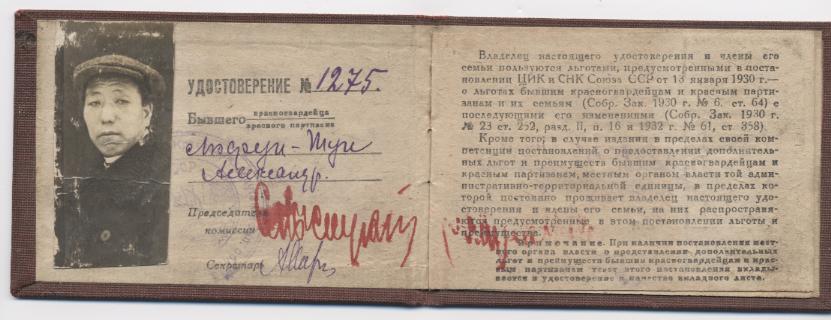 УДОСТОВЕРЕНИЕ № 1275.
Бывшего красногвардейца
красного партизана
Александр.
Председатель
комиссии
Секретарь
Владелец настоящего удостоверения и члены его
семьи пользуются льготами, предусмотренными в поста-
новлении ЦИК и СНК Союза ССР от 13 января 1930 г.—
о льготах бывшим красногвардейцам и красным парти-
занам и их семьям (Собр. Зак. 1930 г. № 6, ст. 64) с
последующими его изменениями (Собр. Зак. 1930 г.
№ 23 ст. 252, разд. II, п. 16 и 1932 г. № 61, ст. 358).
Кроме того, в случае издания в пределах своей ком-
петенции постановлений о предоставлении дополнитель-
ных льгот и преимуществ бывшим красногвардейцам и
красным партизанам, местным органом власти той адми-
нистративно-территориальной единицы, в пределах ко-
торой постоянно проживает владелец настоящего удо-
стоверения и члены его семьи, на них распространя-
ются предусмотренные в этом постановлении льготы и
преимущества.
Примечание. При наличии постановления мест-
ного органа власти о предоставлении дополнительных
льгот и преимуществ бывшим красногвардейцам и крас-
ным партизанам текст этого постановления вклады-
вается в удостоверение в качестве вкладного листа.